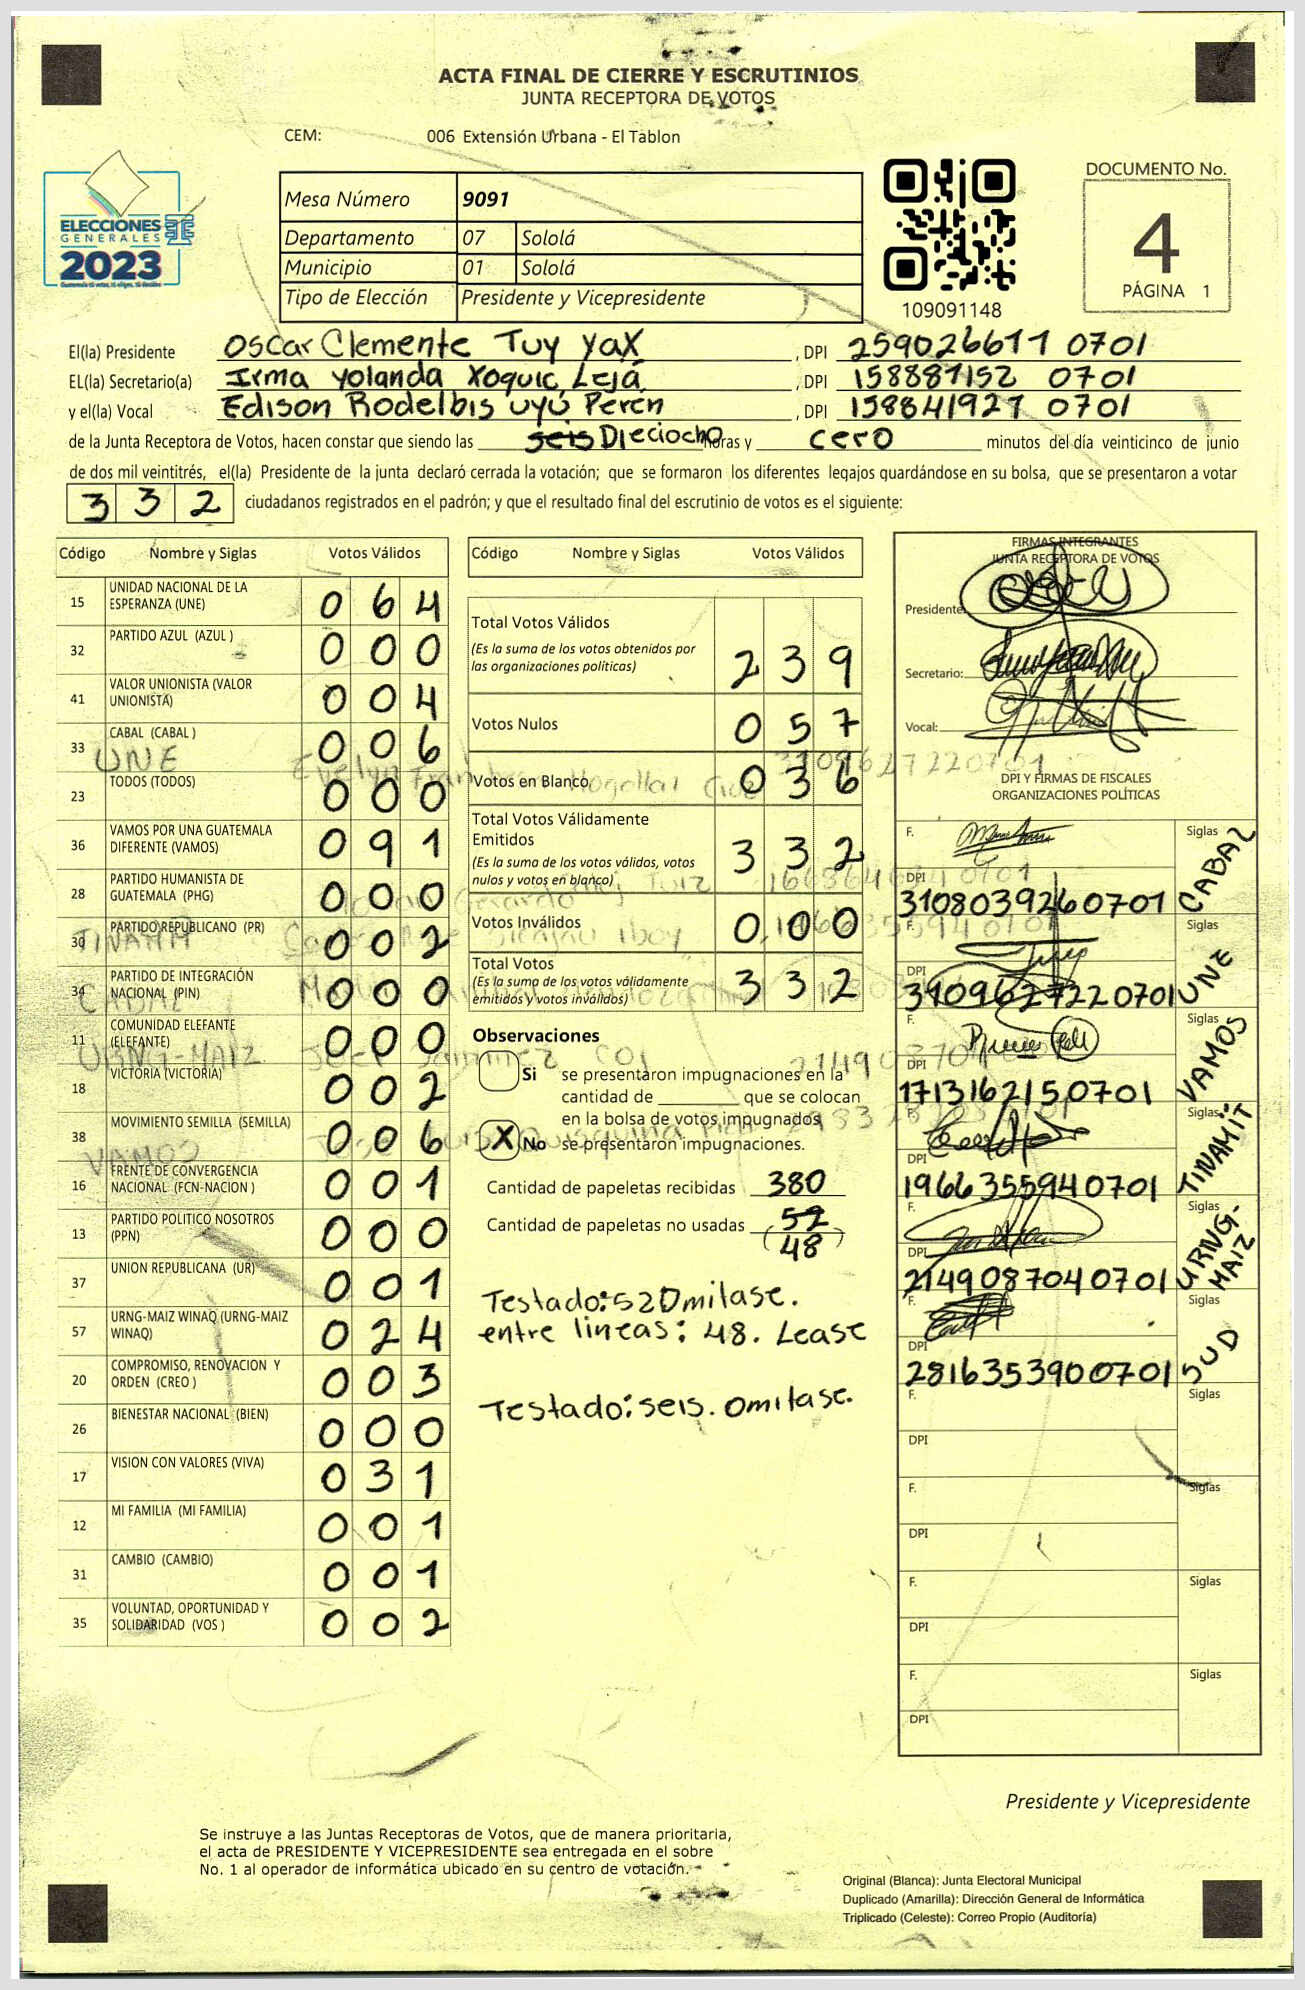 ACTA FINAL DE CIERRE Y ESCRUTINIOS
JUNTA RECEPTORA DE VOTOS
CEM: 006 Extensión Urbana - El Tablon
ELECCIONES
GENERALES
2023
Mesa Número 9091
Departamento 07 Sololá
Municipio 01 Sololá
Tipo de Elección Presidente y Vicepresidente
109091148
DOCUMENTO No.
4
PÁGINA 1
El(la) Presidente Oscar Clemente Tuy Yax , DPI 259026611 0701
EL(la) Secretario(a) Irma Yolanda Xoquic Lejá , DPI 158887152 0701
y el(la) Vocal Edison Rodelbis Uyú Perén , DPI 158841927 0701
de la Junta Receptora de Votos, hacen constar que siendo las seis Dieciocho horas y cero minutos del día veinticinco de junio
de dos mil veintitrés, el(la) Presidente de la junta declaró cerrada la votación; que se formaron los diferentes legajos quardándose en su bolsa, que se presentaron a votar
332 ciudadanos registrados en el padrón; y que el resultado final del escrutinio de votos es el siguiente:
Código Nombre y Siglas Votos Válidos
15 UNIDAD NACIONAL DE LA ESPERANZA (UNE) 064
32 PARTIDO AZUL (AZUL ) 000
41 VALOR UNIONISTA (VALOR UNIONISTA) 004
33 CABAL (CABAL ) 006
23 TODOS (TODOS) 000
36 VAMOS POR UNA GUATEMALA DIFERENTE (VAMOS) 091
28 PARTIDO HUMANISTA DE GUATEMALA (PHG) 000
30 PARTIDO REPUBLICANO (PR) 002
34 PARTIDO DE INTEGRACIÓN NACIONAL (PIN) 000
11 COMUNIDAD ELEFANTE (ELEFANTE) 000
18 VICTORIA (VICTORIA) 002
38 MOVIMIENTO SEMILLA (SEMILLA) 006
16 FRENTE DE CONVERGENCIA NACIONAL (FCN-NACION ) 001
13 PARTIDO POLITICO NOSOTROS (PPN) 000
37 UNION REPUBLICANA (UR) 001
57 URNG-MAIZ WINAQ (URNG-MAIZ WINAQ) 024
20 COMPROMISO, RENOVACION Y ORDEN (CREO ) 003
26 BIENESTAR NACIONAL (BIEN) 000
17 VISION CON VALORES (VIVA) 031
12 MI FAMILIA (MI FAMILIA) 001
31 CAMBIO (CAMBIO) 001
35 VOLUNTAD, OPORTUNIDAD Y SOLIDARIDAD (VOS ) 002
Código Nombre y Siglas Votos Válidos
Total Votos Válidos 239
(Es la suma de los votos obtenidos por
las organizaciones políticas)
Votos Nulos 057
Votos en Blanco 036
Total Votos Válidamente
Emitidos 332
(Es la suma de los votos válidos, votos
nulos y votos en blanco)
Votos Inválidos 000
Total Votos 332
(Es la suma de los votos válidamente
emitidos y votos inválidos)
Observaciones
Si se presentaron impugnaciones en la
cantidad de ________ que se colocan
en la bolsa de votos impugnados
X No se presentaron impugnaciones.
Cantidad de papeletas recibidas 380
Cantidad de papeletas no usadas 52
(48)
Testado: 52 Omitase.
entre lineas: 48. Lease
Testado: seis. Omitase.
FIRMAS INTEGRANTES
JUNTA RECEPTORA DE VOTOS
Presidente:
Secretario:
Vocal:
DPI Y FIRMAS DE FISCALES
ORGANIZACIONES POLÍTICAS
F. Siglas CABAL
DPI 3108039260701
F. Siglas UNE
DPI 3109627220701
F. Siglas VAMOS
DPI 1713162150701
F. Siglas TINAMIT
DPI 1966355940701
F. Siglas URNG-MAIZ
DPI 2149087040701
F. Siglas SUD
DPI 2816353900701
F. Siglas
DPI
F. Siglas
DPI
F. Siglas
DPI
F. Siglas
DPI
Presidente y Vicepresidente
Se instruye a las Juntas Receptoras de Votos, que de manera prioritaria,
el acta de PRESIDENTE Y VICEPRESIDENTE sea entregada en el sobre
No. 1 al operador de informática ubicado en su centro de votación.
Original (Blanca): Junta Electoral Municipal
Duplicado (Amarilla): Dirección General de Informática
Triplicado (Celeste): Correo Propio (Auditoría)